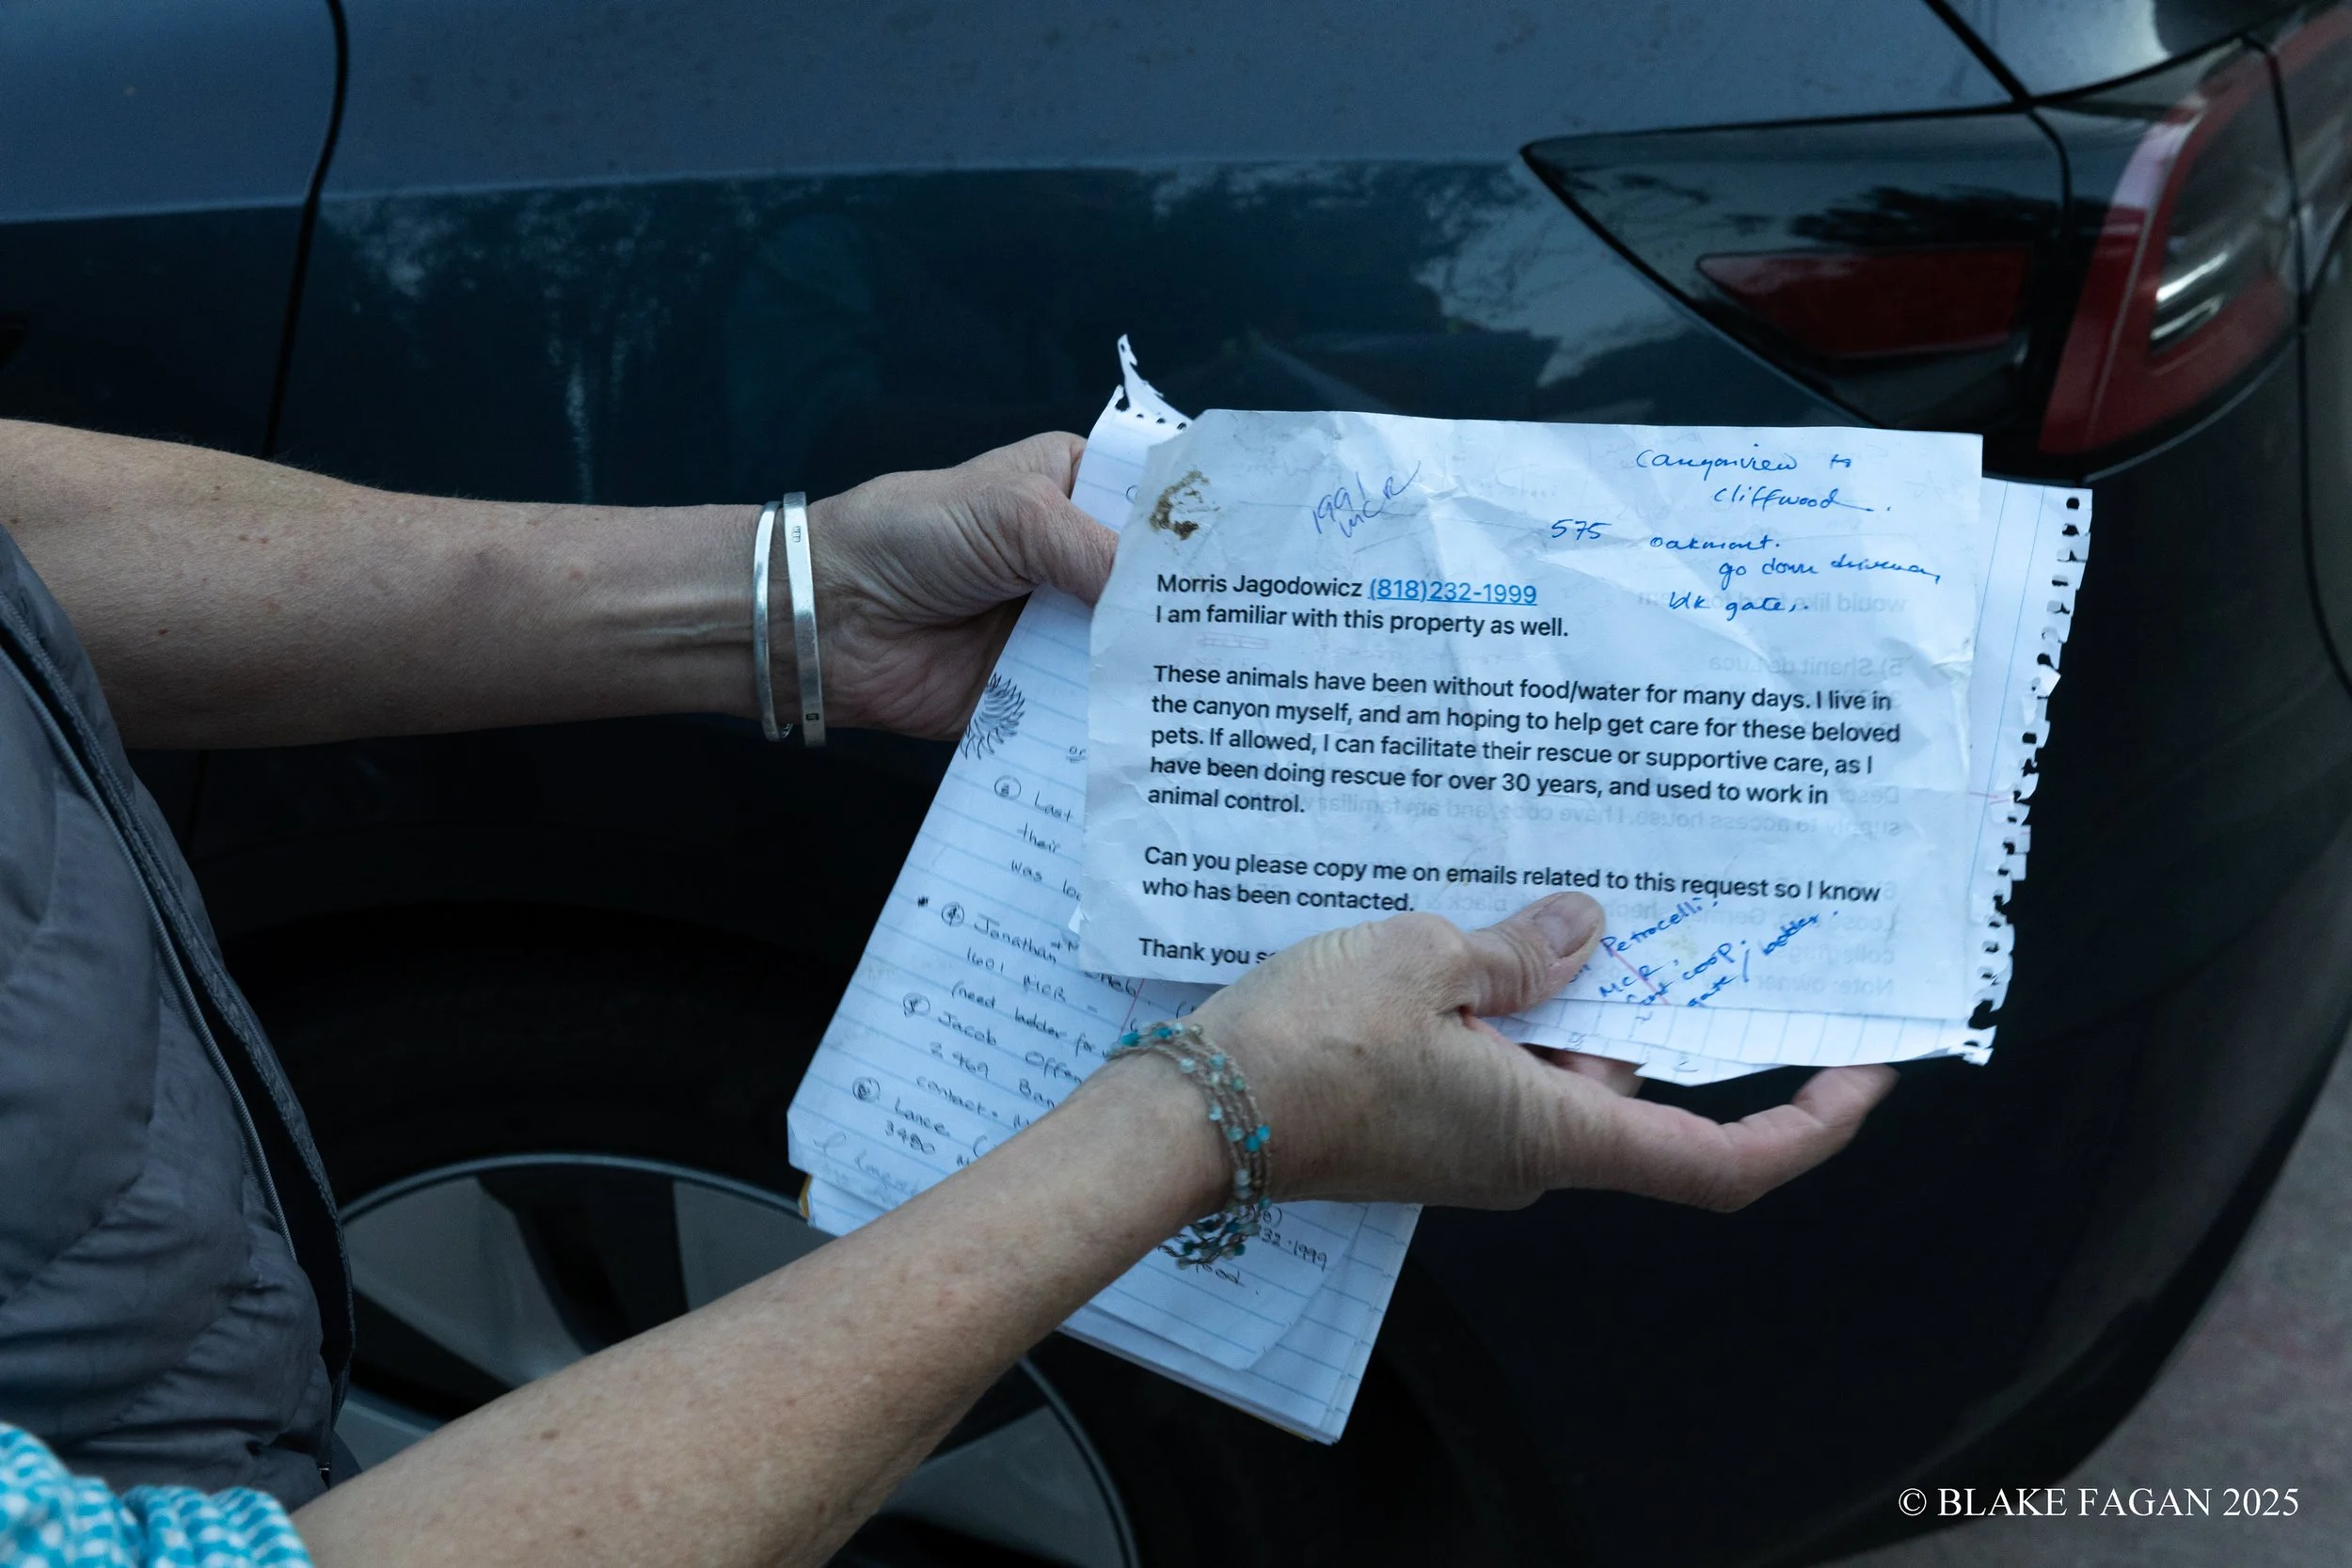 Canyonview to
Cliffwood.
1991
MCR
575 oakmont.
go down driveway
blk gate,.
Morris Jagodowicz (818)232-1999
I am familiar with this property as well.
These animals have been without food/water for many days. I live in
the canyon myself, and am hoping to help get care for these beloved
pets. If allowed, I can facilitate their rescue or supportive care, as I
have been doing rescue for over 30 years, and used to work in
animal control.
Can you please copy me on emails related to this request so I know
who has been contacted.
Thank you
Petrocelli
MCR.
coop.
gate/ ladder
or
Last
their
was
④ Jonathan
1601 MCR -
(need ladder for
⑤ Jacob Offen
2469 Ban
contact:
⑥ Lance (
3490
32-1999
© BLAKE FAGAN 2025